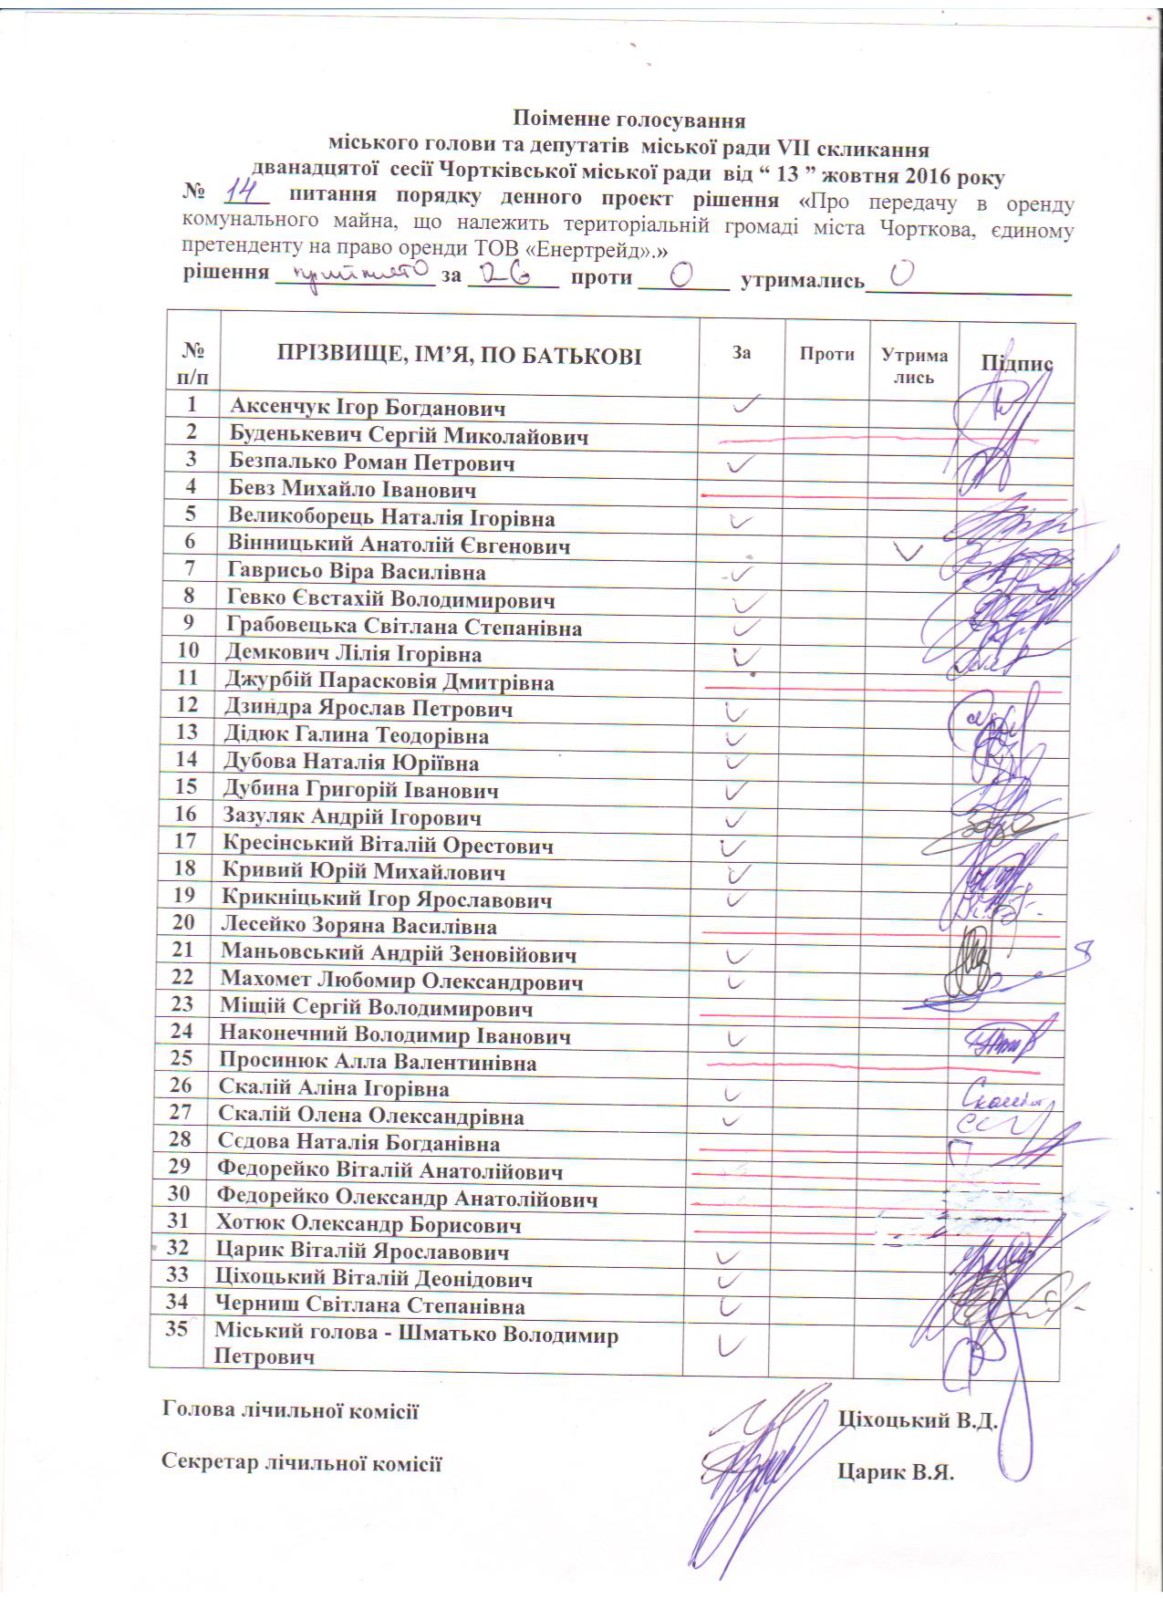 Поіменне голосування
міського голови та депутатів міської ради VII скликання
дванадцятої сесії Чортківської міської ради від “ 13 ” жовтня 2016 року
№ 14 питання порядку денного проект рішення «Про передачу в оренду
комунального майна, що належить територіальній громаді міста Чорткова, єдиному
претенденту на право оренди ТОВ «Енертрейд».»
рішення прийнято за 26 проти 0 утримались 0
№ п/п ПРІЗВИЩЕ, ІМ’Я, ПО БАТЬКОВІ За Проти Утрима лись Підпис
1 Аксенчук Ігор Богданович
2 Буденькевич Сергій Миколайович
3 Безпалько Роман Петрович
4 Бевз Михайло Іванович
5 Великоборець Наталія Ігорівна
6 Вінницький Анатолій Євгенович
7 Гаврисьо Віра Василівна
8 Гевко Євстахій Володимирович
9 Грабовецька Світлана Степанівна
10 Демкович Лілія Ігорівна
11 Джурбій Парасковія Дмитрівна
12 Дзиндра Ярослав Петрович
13 Дідюк Галина Теодорівна
14 Дубова Наталія Юріївна
15 Дубина Григорій Іванович
16 Зазуляк Андрій Ігорович
17 Кресінський Віталій Орестович
18 Кривий Юрій Михайлович
19 Крикніцький Ігор Ярославович
20 Лесейко Зоряна Василівна
21 Маньовський Андрій Зеновійович
22 Махомет Любомир Олександрович
23 Міщій Сергій Володимирович
24 Наконечний Володимир Іванович
25 Просинюк Алла Валентинівна
26 Скалій Аліна Ігорівна
27 Скалій Олена Олександрівна
28 Сєдова Наталія Богданівна
29 Федорейко Віталій Анатолійович
30 Федорейко Олександр Анатолійович
31 Хотюк Олександр Борисович
32 Царик Віталій Ярославович
33 Ціхоцький Віталій Деонідович
34 Черниш Світлана Степанівна
35 Міський голова - Шматько Володимир
Петрович
Голова лічильної комісії Ціхоцький В.Д.
Секретар лічильної комісії Царик В.Я.